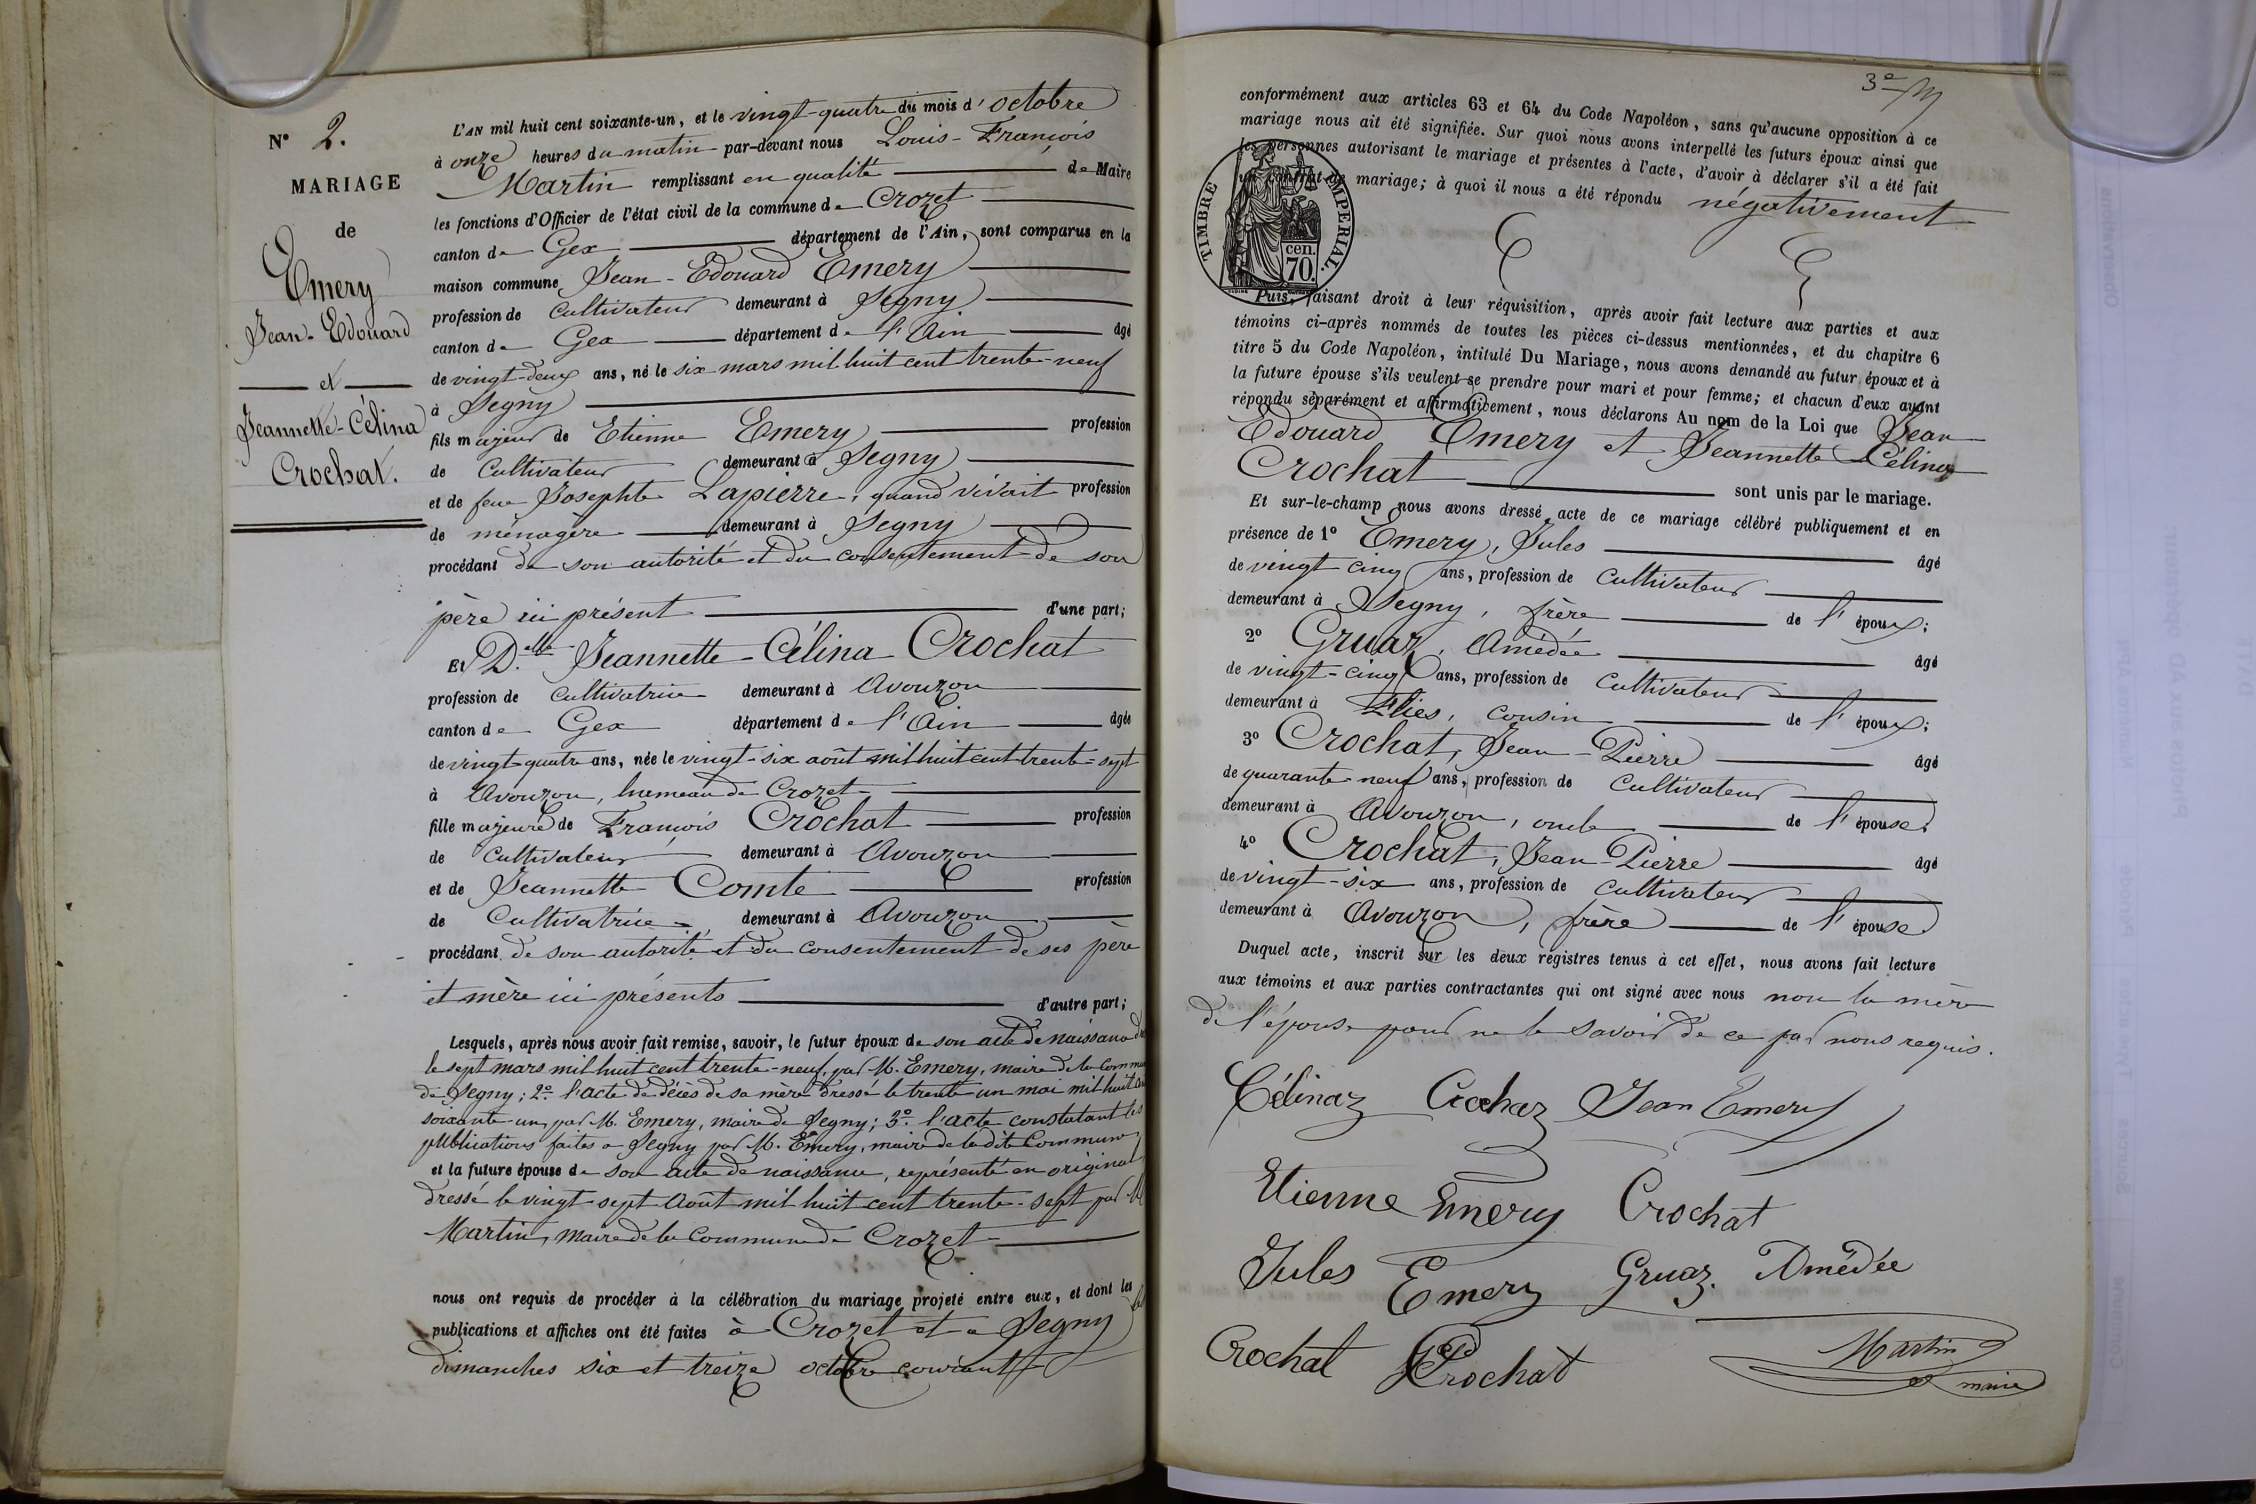 N° 2.
MARIAGE
de
Emery
Jean-Edouard
et
Jeannette-Célina
Crochat.
L'AN mil huit cent soixante-un, et le vingt-quatre du mois d'octobre
à onze heures du matin par-devant nous Louis-François
Martin remplissant en qualité de Maire
les fonctions d'Officier de l'état civil de la commune de Crozet
canton de Gex département de l'Ain, sont comparus en la
maison commune Jean-Edouard Emery
profession de cultivateur demeurant à Segny
canton de Gex département de l'Ain âgé
de vingt-deux ans, né le six mars mil huit cent trente-neuf
à Segny
fils majeur de Etienne Emery profession
de cultivateur demeurant à Segny
et de feue Josephte Lapierre, quand vivait profession
de ménagère demeurant à Segny
procédant de son autorité et du consentement de son
père ici présent d'une part;
Et D.elle Jeannette-Célina Crochat
profession de cultivatrice demeurant à Avouzon
canton de Gex département de l'Ain âgée
de vingt-quatre ans, née le vingt-six août mil huit cent trente-sept
à Avouzon, hameau de Crozet
fille majeure de François Crochat profession
de cultivateur demeurant à Avouzon
et de Jeannette Comte profession
de cultivatrice demeurant à Avouzon
procédant de son autorité et du consentement de ses père
et mère ici présents d'autre part;
Lesquels, après nous avoir fait remise, savoir, le futur époux de son acte de naissance
le sept mars mil huit cent trente-neuf, par M. Emery, maire de la commune
de Segny; 2° l'acte de décès de sa mère dressé le trente un mai mil huit cent
soixante un, par M. Emery, maire de Segny; 3° l'acte constatant les
publications faites à Segny par M. Emery, maire de la dite commune
et la future épouse de son acte de naissance, représenté en original
dressé le vingt-sept août mil huit cent trente-sept par M
Martin, maire de la commune de Crozet
nous ont requis de procéder à la célébration du mariage projeté entre eux, et dont les
publications et affiches ont été faites à Crozet et à Segny les
dimanches six et treize octobre courant
3e
conformément aux articles 63 et 64 du Code Napoléon, sans qu'aucune opposition à ce
mariage nous ait été signifiée. Sur quoi nous avons interpellé les futurs époux ainsi que
les personnes autorisant le mariage et présentes à l'acte, d'avoir à déclarer s'il a été fait
un contrat de mariage; à quoi il nous a été répondu négativement
TIMBRE IMPERIAL.
cen.
70.
Puis, faisant droit à leur réquisition, après avoir fait lecture aux parties et aux
témoins ci-après nommés de toutes les pièces ci-dessus mentionnées, et du chapitre 6
titre 5 du Code Napoléon, intitulé Du Mariage, nous avons demandé au futur époux et à
la future épouse s'ils veulent se prendre pour mari et pour femme; et chacun d'eux ayant
répondu séparément et affirmativement, nous déclarons Au nom de la Loi que Jean
Edouard Emery et Jeannette Célina
Crochat sont unis par le mariage.
Et sur-le-champ nous avons dressé acte de ce mariage célébré publiquement et en
présence de 1° Emery, Jules âgé
de vingt cinq ans, profession de cultivateur
demeurant à Segny, frère de l'époux;
2° Gruaz, Amédée âgé
de vingt-cinq ans, profession de cultivateur
demeurant à Flies, cousin de l'époux;
3° Crochat, Jean-Pierre âgé
de quarante-neuf ans, profession de cultivateur
demeurant à Avouzon, oncle de l'épouse.
4° Crochat, Jean-Pierre âgé
de vingt-six ans, profession de cultivateur
demeurant à Avouzon, frère de l'épouse.
Duquel acte, inscrit sur les deux registres tenus à cet effet, nous avons fait lecture
aux témoins et aux parties contractantes qui ont signé avec nous non la mère
de l'épouse pour ne le savoir de ce par nous requis.
Célinaz Crochaz Jean Emery
Etienne Emery Crochat
Jules Emery Gruaz. Amédée
Crochat Crochat
Martin
maire